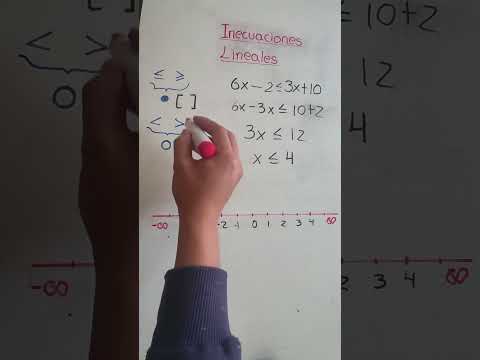 Inecuaciones
Lineales
≤ ≥
[ ]
< >
6x-2≤3x+10
6x-3x≤10+2
3x≤12
x≤4
-∞ -2 -1 0 1 2 3 4 ∞